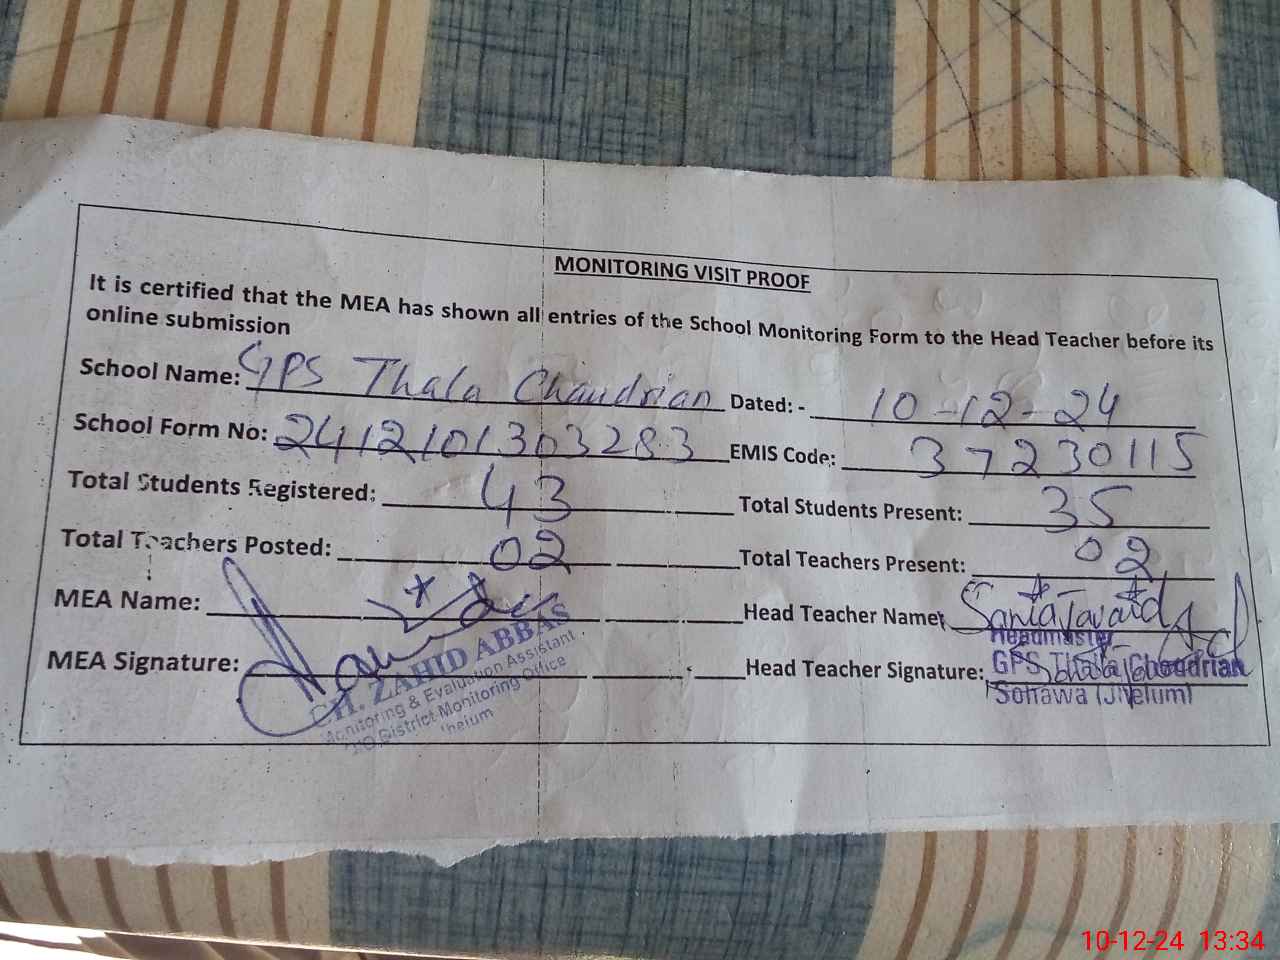 MONITORING VISIT PROOF
It is certified that the MEA has shown all entries of the School Monitoring Form to the Head Teacher before its
online submission
School Name: GPS Thala Chaudrian Dated: - 10-12-24
School Form No: 2412101303283 EMIS Code: 37230115
Total Students Registered: 43 Total Students Present: 35
Total Teachers Posted: 02 Total Teachers Present: 02
MEA Name: Head Teacher Name: Sania Javaid
Headmaster
MEA Signature: Head Teacher Signature: GPS Thala Choudrian
Sohawa (Jhelum)
CH. ZAHID ABBAS
Monitoring & Evaluation Assistant
District Monitoring Office
Jhelum
10-12-24 13:34